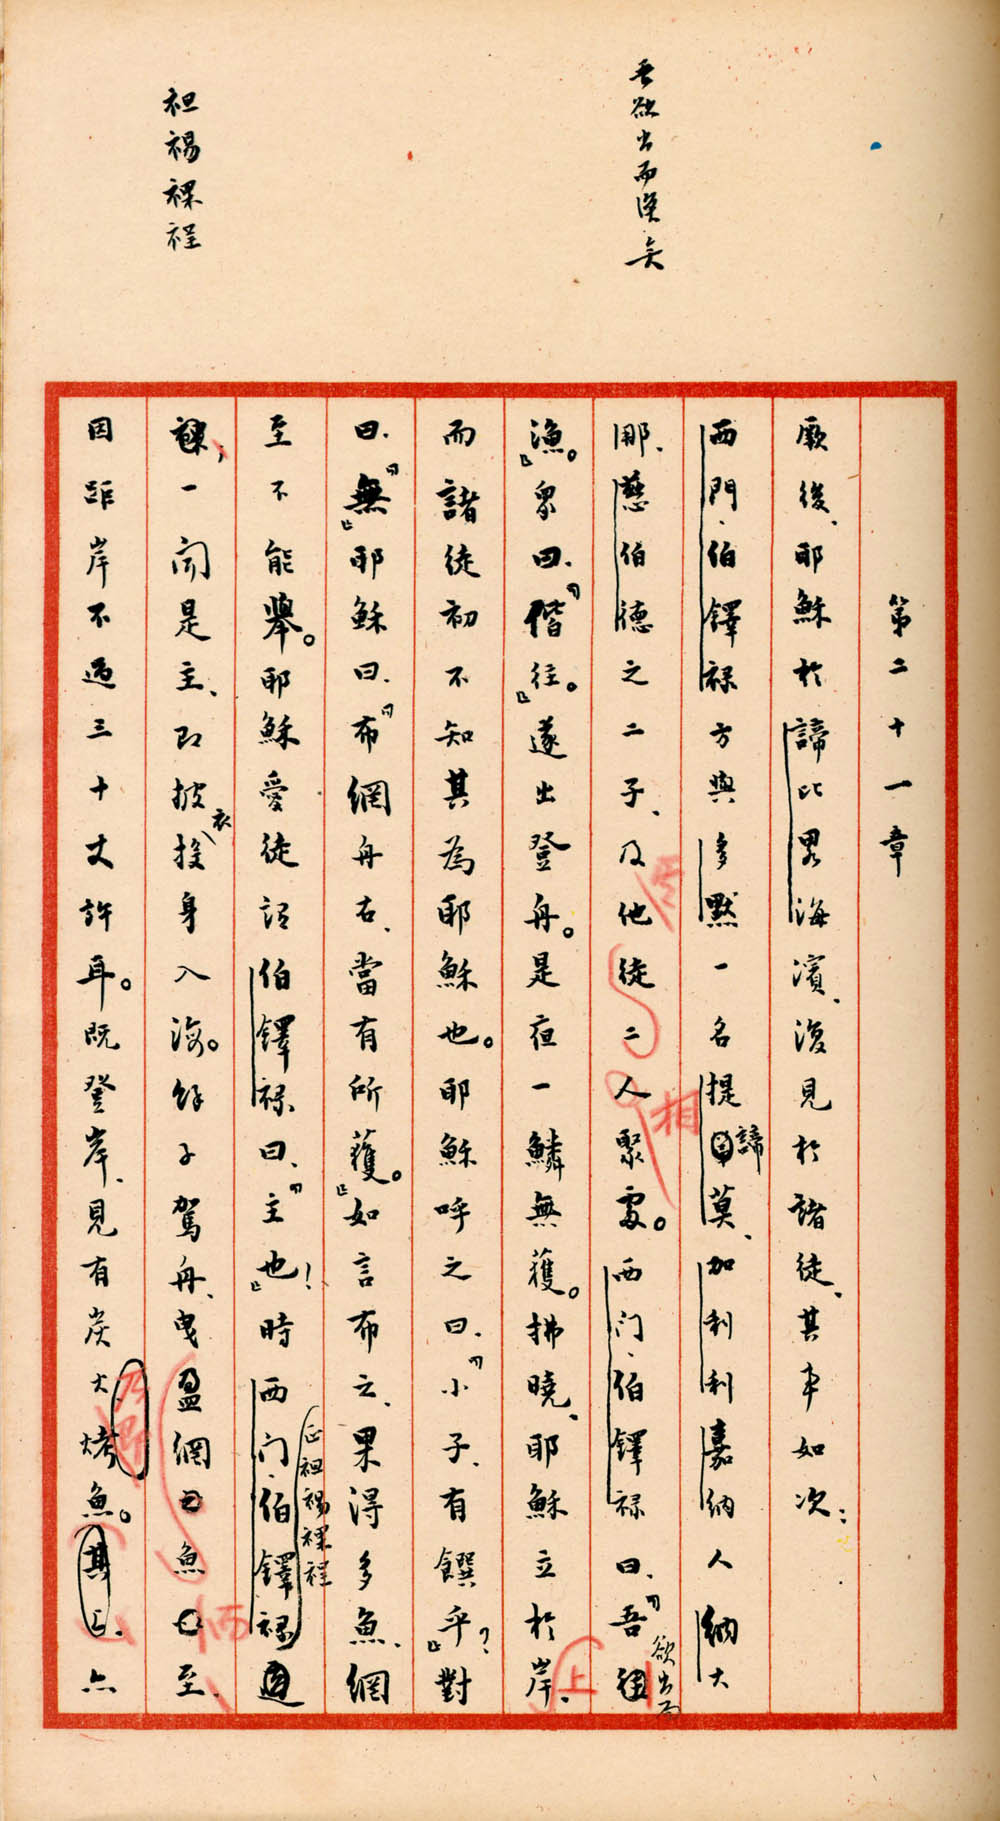 吾欲出而漁矣
袒裼裸裎
第二十一章
厥後、耶穌於諦比畧海濱、復見於諸徒、其事如次：
西門·伯鐸祿方與多默一名提諦莫、加利利嘉納人納大
那、慈伯德之二子、及他徒二人聚處。西门·伯鐸祿曰、「吾欲出而
漁。」眾曰、「偕往。」遂出登舟。是夜一鱗無獲。拂曉、耶穌立於岸上、
而諸徒初不知其為耶穌也。耶穌呼之曰、「小子、有饌乎？」對
曰、「無」耶穌曰、「布網舟右、當有所獲。」如言布之、果得多魚、網
至不能舉。耶穌愛徒語伯鐸祿曰、「主也！」時西门·伯鐸祿
正袒裼裸裎
裸；一聞是主、即披衣投身入海。餘子駕舟、曳盈網魚至、
因距岸不過三十丈許耳。既登岸、見有炭火烤魚。其上、亦
相